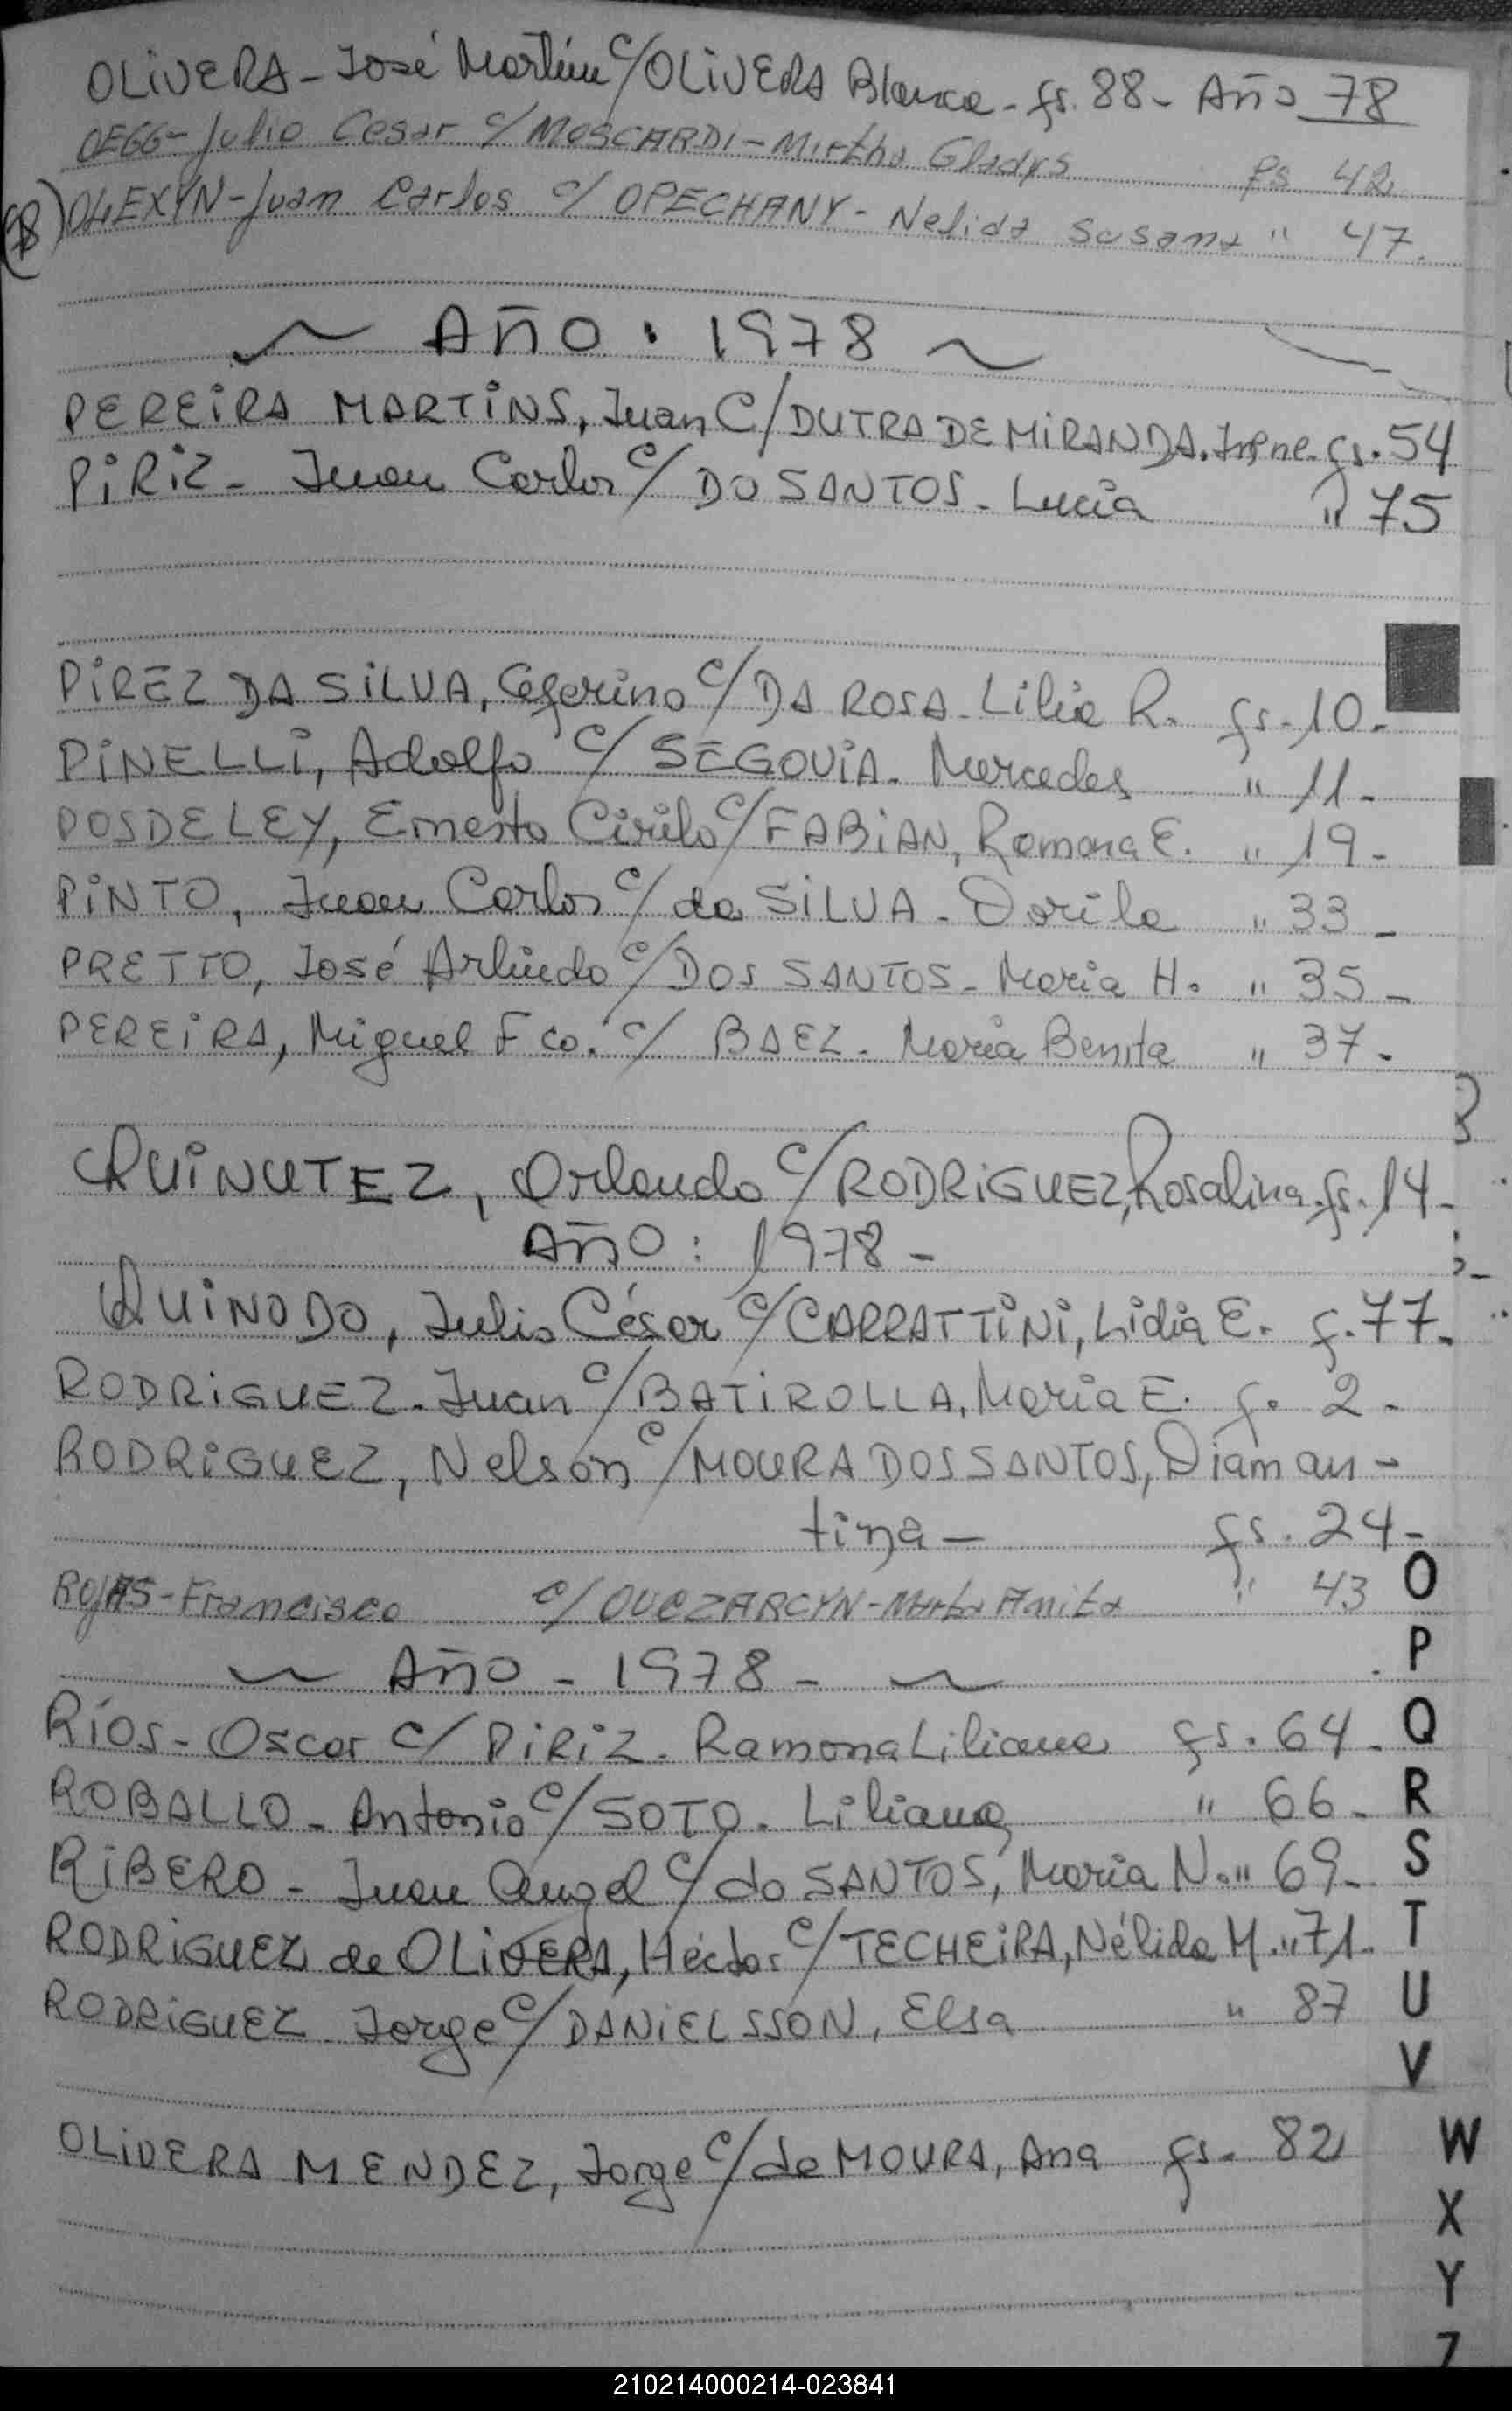 OLIVERA - José Martín c/ OLIVERA Blanca - fs. 88 - Año 78
OEGG - Julio Cesar c/ MOSCARDI - Mirtha Gladys fs 42
78) OLEXYN - Juan Carlos c/ OPECHANY - Nelida Susana " 47.
~ AÑO : 1978 ~
PEREIRA MARTINS, Juan C/ DUTRA DE MIRANDA. Irene. fs. 54
PIRIZ - Juan Carlos c/ DO SANTOS - Lucia " 75
PIREZ DA SILVA, Ceferino c/ DA ROSA - Lilia R. fs. 10.
PINELLI, Adolfo c/ SEGOVIA. Mercedes " 11 -
POSDELEY, Ernesto Cirilo c/ FABIAN, Ramona E. " 19 -
PINTO, Juan Carlos c/ da SILVA - Dorila " 33 -
PRETTO, José Arlindo c/ DOS SANTOS - Maria H. " 35 -
PEREIRA, Miguel Fco. c/ BAEZ - Maria Benita " 37 -
QUINUTEZ, Orlando c/ RODRIGUEZ, Rosalina. fs. 14 -
AÑO : 1978 -
QUINODO, Julio César c/ CARRATTINI, Lidia E. f. 77.
RODRIGUEZ - Juan c/ BATIROLLA, Maria E. f. 2 -
RODRIGUEZ, Nelson c/ MOURA DOS SANTOS, Diaman -
tina - fs. 24 -
ROJAS - Francisco c/ OUCZARCYN - Marta Anita " 43
~ AÑO - 1978 - ~
RÍOS - Oscar c/ PIRIZ - Ramona Liliana fs. 64 -
ROBALLO - Antonio c/ SOTO - Liliana " 66 -
RIBERO - Juan Angel c/ do SANTOS, Maria N. " 69 -
RODRIGUEZ de OLIVERA, Héctor c/ TECHEIRA, Nélida M. " 71.
RODRIGUEZ Jorge c/ DANIELSSON, Elsa " 87
OLIVERA MENDEZ, Jorge c/ de MOURA, Ana fs. 82
O
P
Q
R
S
T
U
V
W
X
Y
Z
210214000214-023841